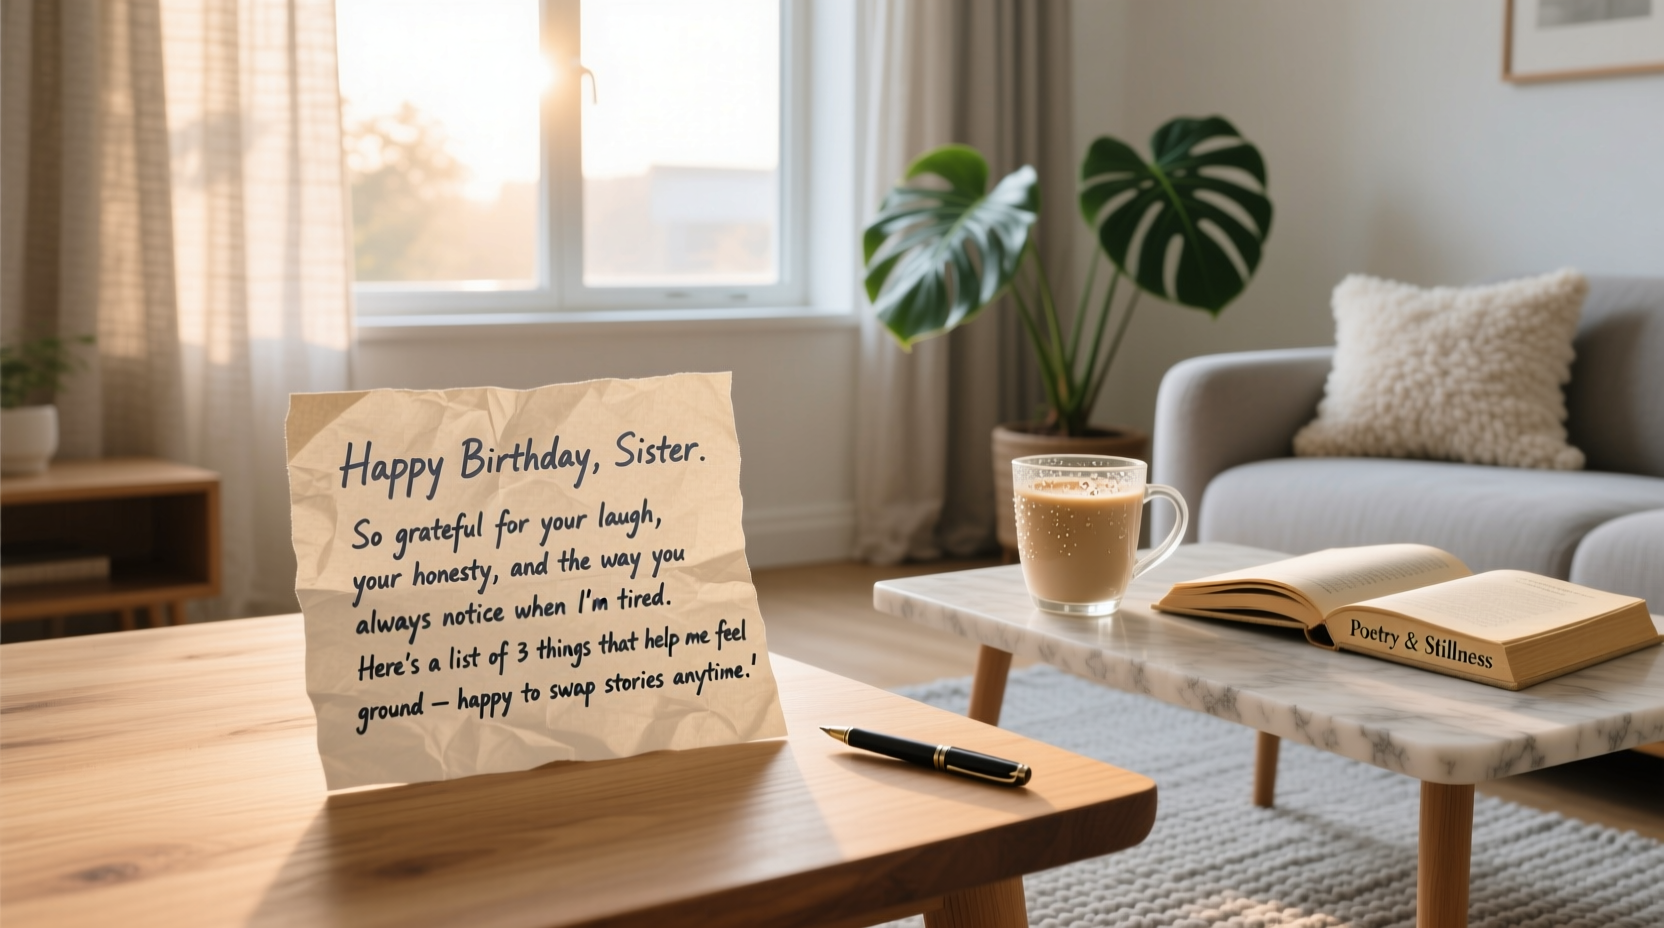 Happy Birthday, Sister.
So grateful for your laugh,
your honesty, and the way you
always notice when I'm tired.
Here's a list of 3 things that help me feel
ground – happy to swap stories anytime.'
Poetry & Stillness